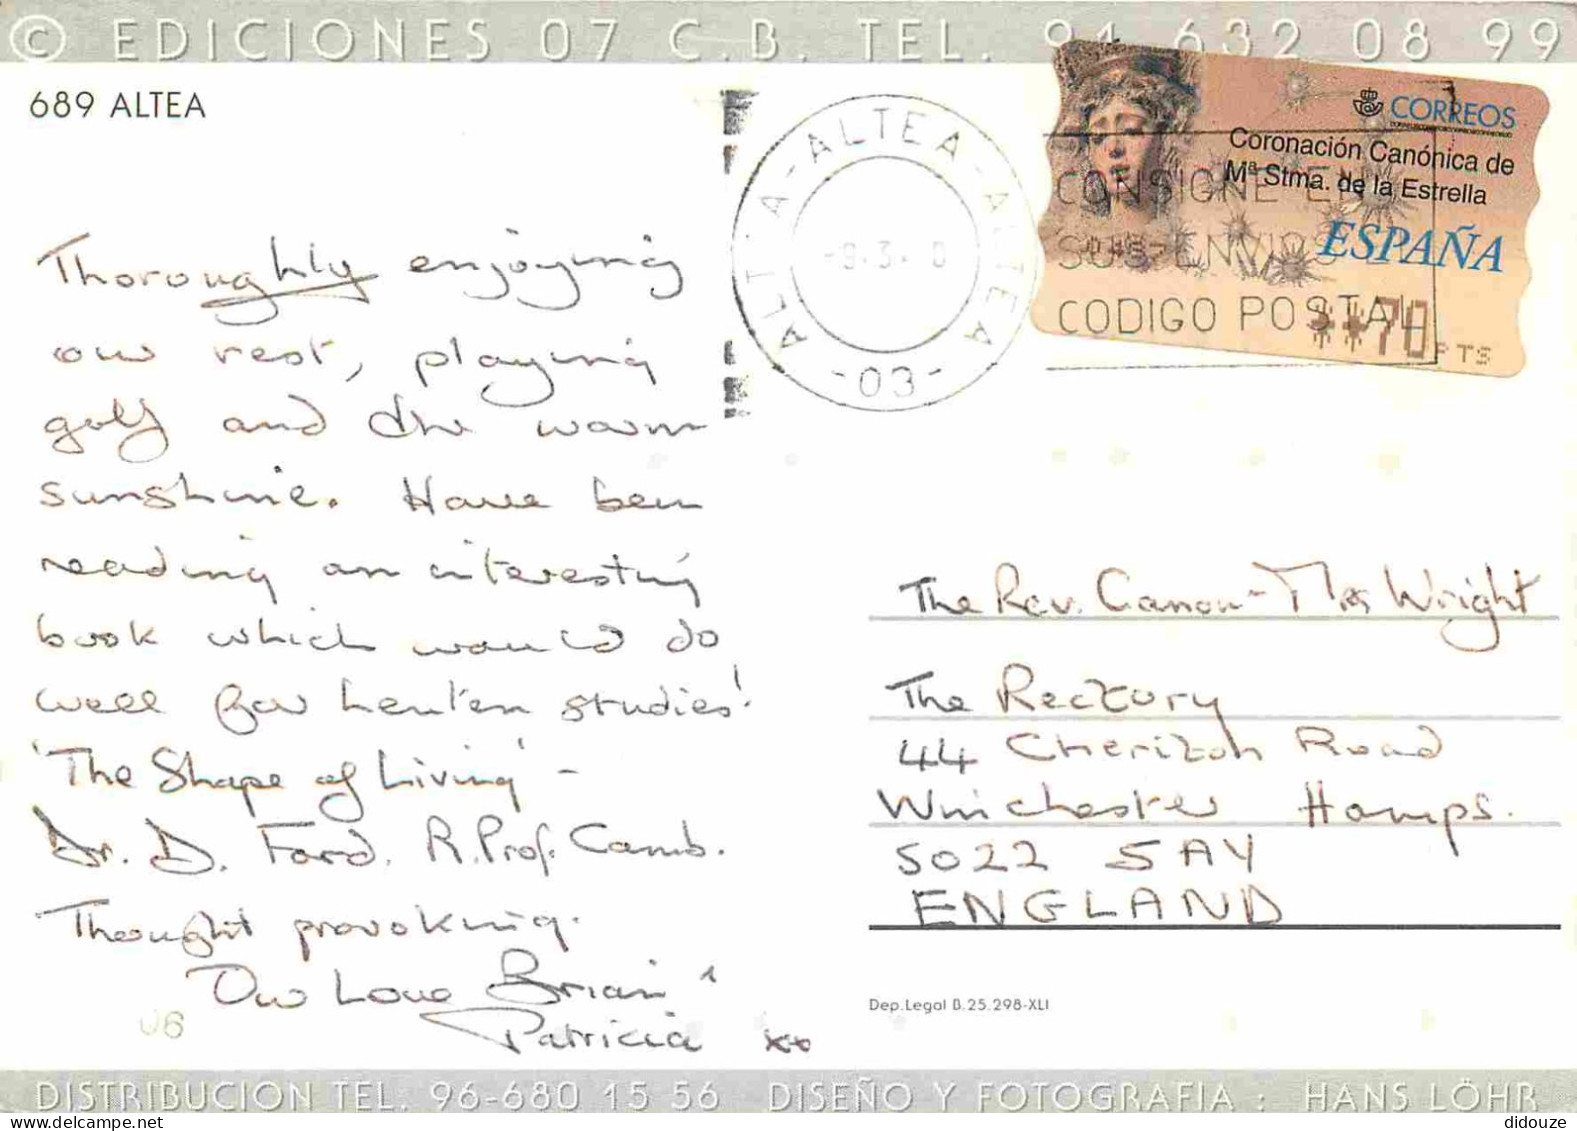 © EDICIONES 07 C.B. TEL. 94 632 08 99
689 ALTEA
ALTEA - ALTEA - ALTEA
-9.3. 0
- 03 -
CORREOS
Coronación Canónica de
Mª Stma. de la Estrella
ESPAÑA
**70 PTS
CONSIGNE EN
SUS ENVIOS
CODIGO POSTAL
Thoroughly enjoying
our rest, playing
golf and the warm
sunshine. Have been
reading an interesting
book which would do
well for Lenten studies!
'The Shape of Living' -
Dr. D. Ford. R. Prof. Camb.
Thought provoking.
Our Love Brian +
Patricia xx
06
The Rev. Canon - Mrs Wright
The Rectory
44 Cheriton Road
Winchester Hamps.
SO22 5AY
ENGLAND
Dep. Legal B.25.298-XLI
DISTRIBUCION TEL. 96-680 15 56 DISEÑO Y FOTOGRAFIA : HANS LÖHR
delcampe.net
didouze